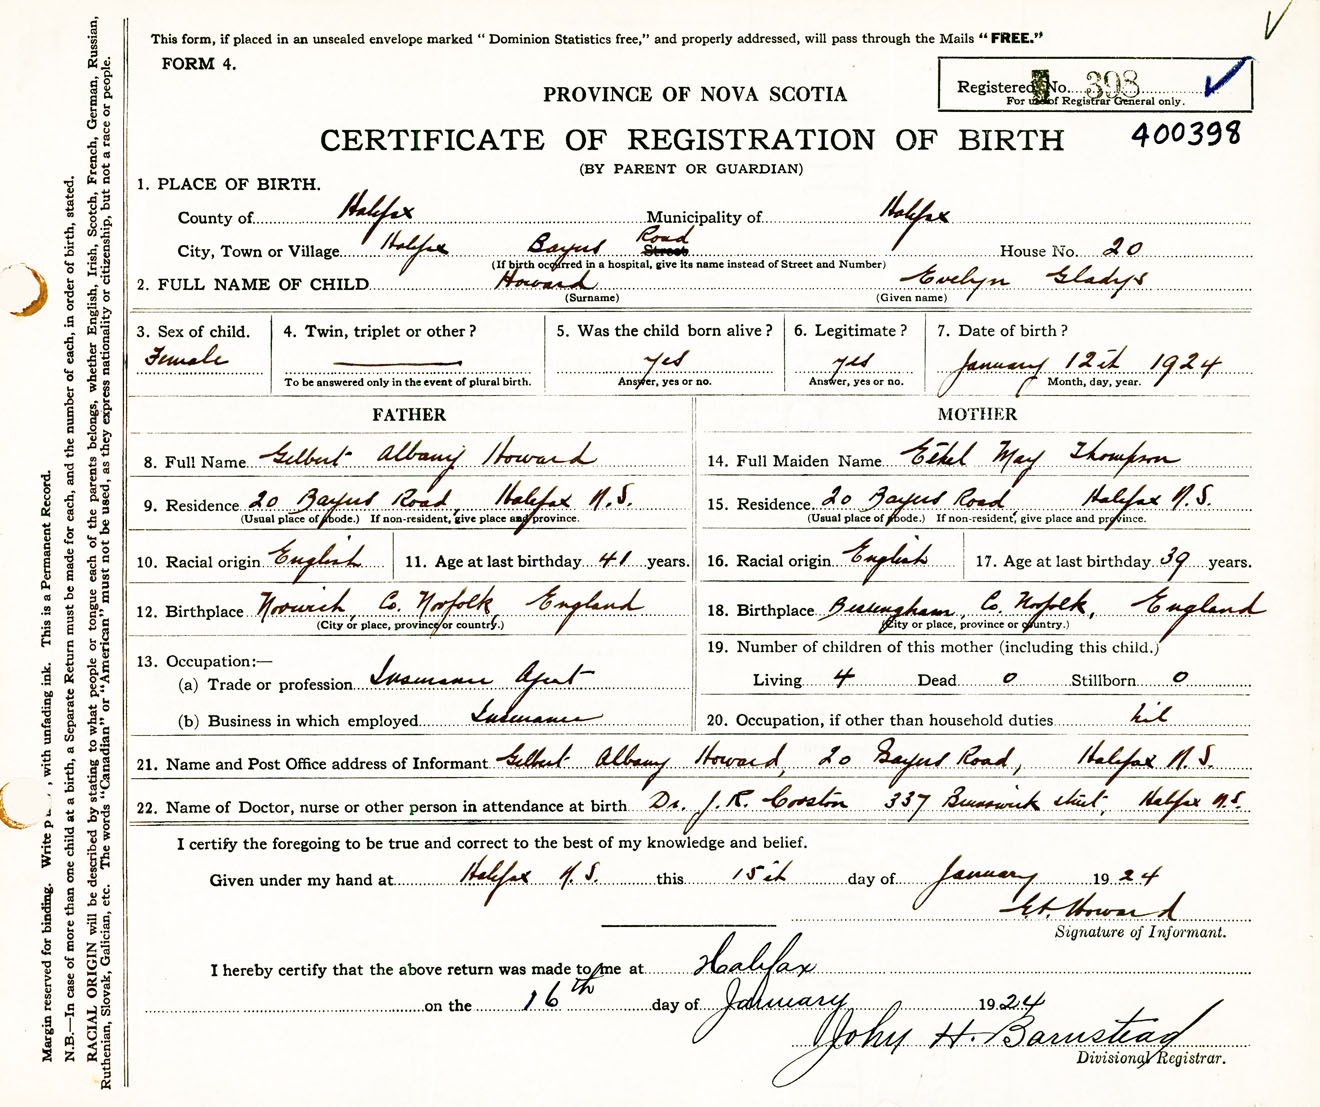 This form, if placed in an unsealed envelope marked " Dominion Statistics free," and properly addressed, will pass through the Mails "FREE."
FORM 4.
Registered No. 398
For use of Registrar General only.
PROVINCE OF NOVA SCOTIA
CERTIFICATE OF REGISTRATION OF BIRTH
400398
(BY PARENT OR GUARDIAN)
1. PLACE OF BIRTH.
County of Halifax Municipality of Halifax
City, Town or Village Halifax Bayers Road Street House No. 20
(If birth occurred in a hospital, give its name instead of Street and Number)
2. FULL NAME OF CHILD Howard Evelyn Gladys
(Surname) (Given name)
3. Sex of child. 4. Twin, triplet or other? 5. Was the child born alive? 6. Legitimate? 7. Date of birth?
Female yes yes January 12th 1924
To be answered only in the event of plural birth. Answer, yes or no. Answer, yes or no. Month, day, year.
FATHER MOTHER
8. Full Name Gilbert Albany Howard 14. Full Maiden Name Ethel May Thompson
9. Residence 20 Bayers Road, Halifax N.S. 15. Residence 20 Bayers Road, Halifax N.S.
(Usual place of abode.) If non-resident, give place and province. (Usual place of abode.) If non-resident, give place and province.
10. Racial origin English 11. Age at last birthday 41 years. 16. Racial origin English 17. Age at last birthday 39 years.
12. Birthplace Norwich, Co. Norfolk, England 18. Birthplace Bessingham, Co. Norfolk, England
(City or place, province or country.) (City or place, province or country.)
19. Number of children of this mother (including this child.)
13. Occupation:—
(a) Trade or profession Insurance Agent Living 4 Dead 0 Stillborn 0
(b) Business in which employed Insurance 20. Occupation, if other than household duties nil
21. Name and Post Office address of Informant Gilbert Albany Howard, 20 Bayers Road, Halifax N.S.
22. Name of Doctor, nurse or other person in attendance at birth Dr. J. R. Corston 337 Brunswick street, Halifax N.S.
I certify the foregoing to be true and correct to the best of my knowledge and belief.
Given under my hand at Halifax N.S. this 15th day of January 1924
G.A. Howard
Signature of Informant.
I hereby certify that the above return was made to me at Halifax
on the 16th day of January 1924
John H. Barnstead
Divisional Registrar.
Margin reserved for binding. Write with unfading ink. This is a Permanent Record.
N.B.—In case of more than one child at a birth, a Separate Return must be made for each, and the number of each, in order of birth, stated.
RACIAL ORIGIN will be described by stating to what people or tongue each of the parents belongs, whether English, Irish, Scotch, French, German, Russian,
Ruthenian, Slovak, Galician, etc. The words "Canadian" or "American" must not be used, as they express nationality or citizenship, but not a race or people.